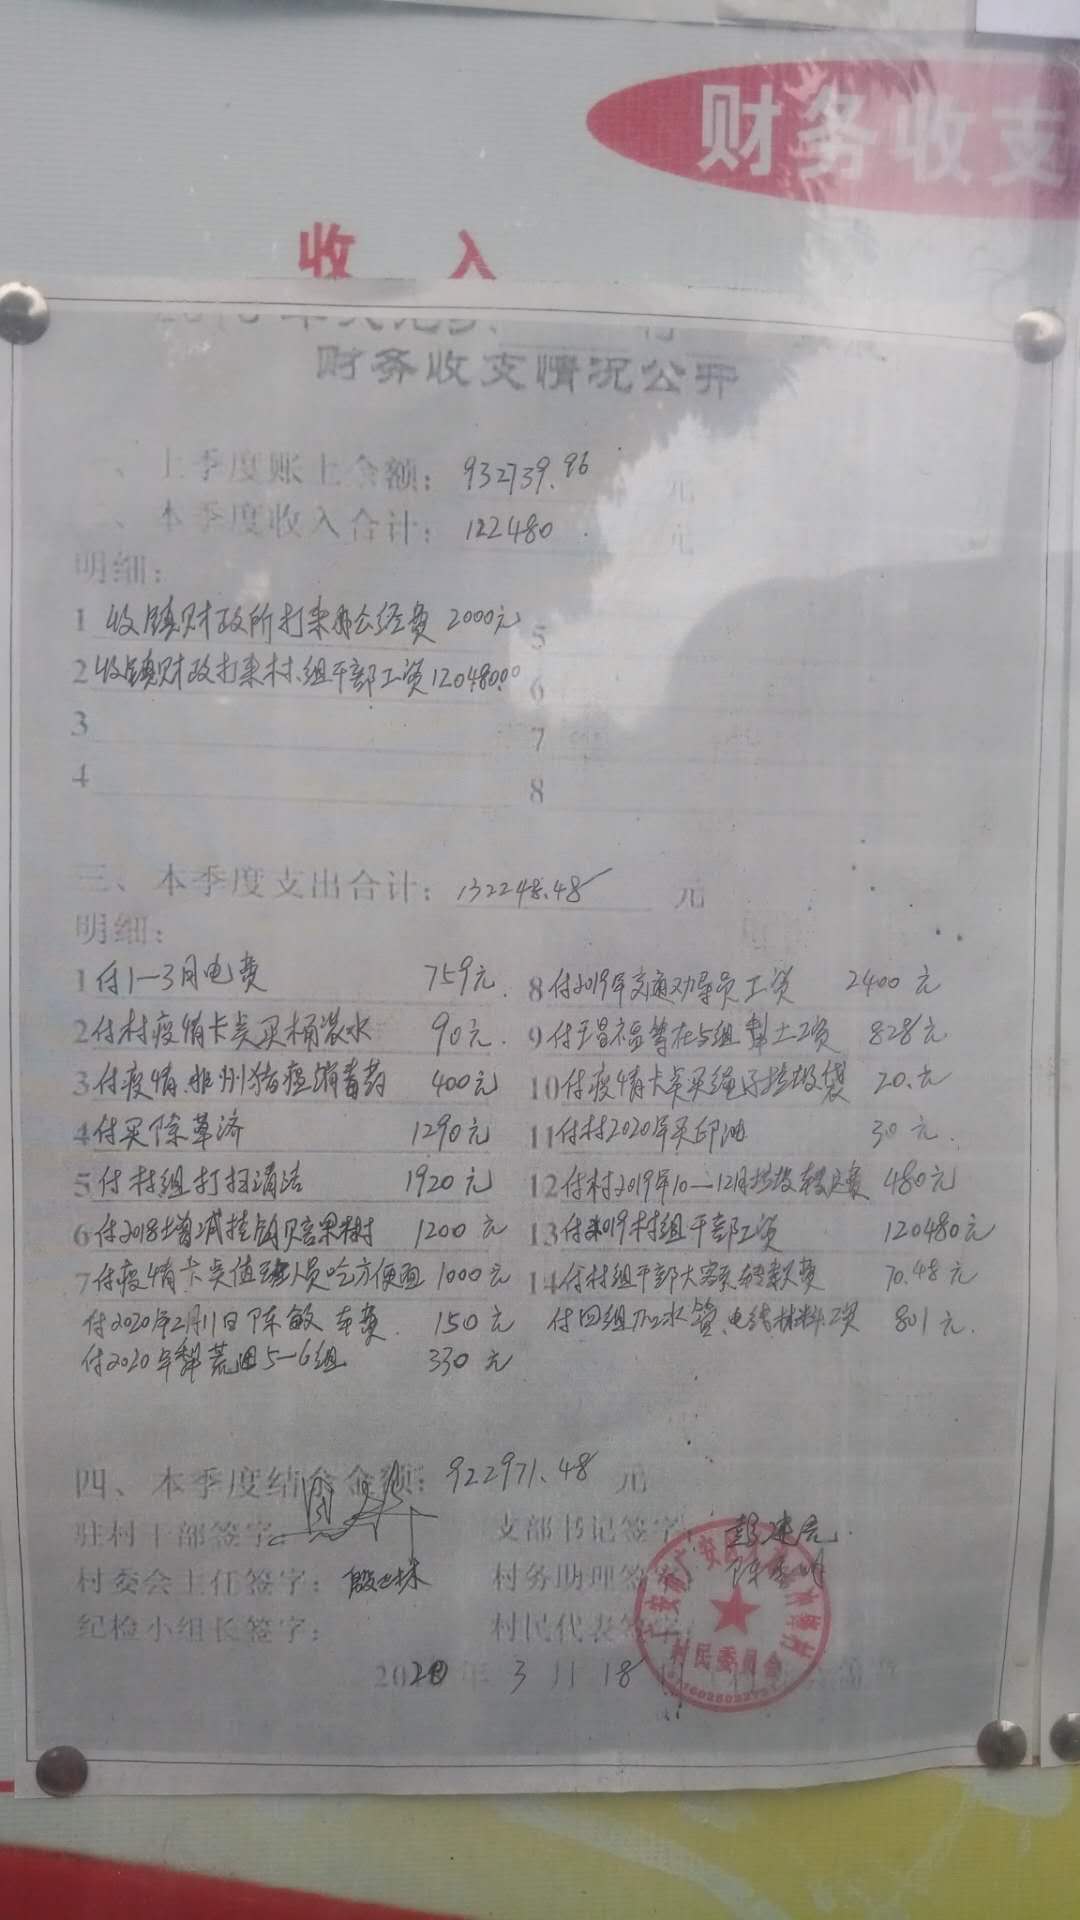 财务收支
收 入
财务收支情况公开
一、上季度账上金额：932739.96 元
二、本季度收入合计：122480 元
明细：
1 收镇财政所打来办公经费 2000元 5
2 收镇财政打来村、组干部工资120480.00 6
3 7
4 8
三、本季度支出合计：132248.48 元
明细：
1 付1—3月电费 759元 8 付2019年交通劝导员工资 2400元
2 付村疫情卡点买桶装水 90元 9 付王昌福等在5组 土工资 828元
3 付疫情、非州猪瘟消毒药 400元 10 付疫情卡点买绳子垃圾袋 20元
4 付买除草济 1290元 11 付村2020年买印油 30元
5 付村组打扫清洁 1920元 12 付村2019年10—12月垃圾转运费 480元
6 付2018增减挂钩赔果树 1200元 13 付2019村组干部工资 120480元
7 付疫情卡点值班人员吃方便面 1000元 14 付村组干部大客户转款费 70.48元
付2020年2月11日陈敏车费 150元 付四组 水管、电线材料工资 801元
付2020年犁荒田5—6组 330元
四、本季度结余金额：922971.48 元
驻村干部签字： 支部书记签字：彭建
村委会主任签字： 村务助理签字：
纪检小组长签字： 村民代表签字：
2020年3月18
村民委员会